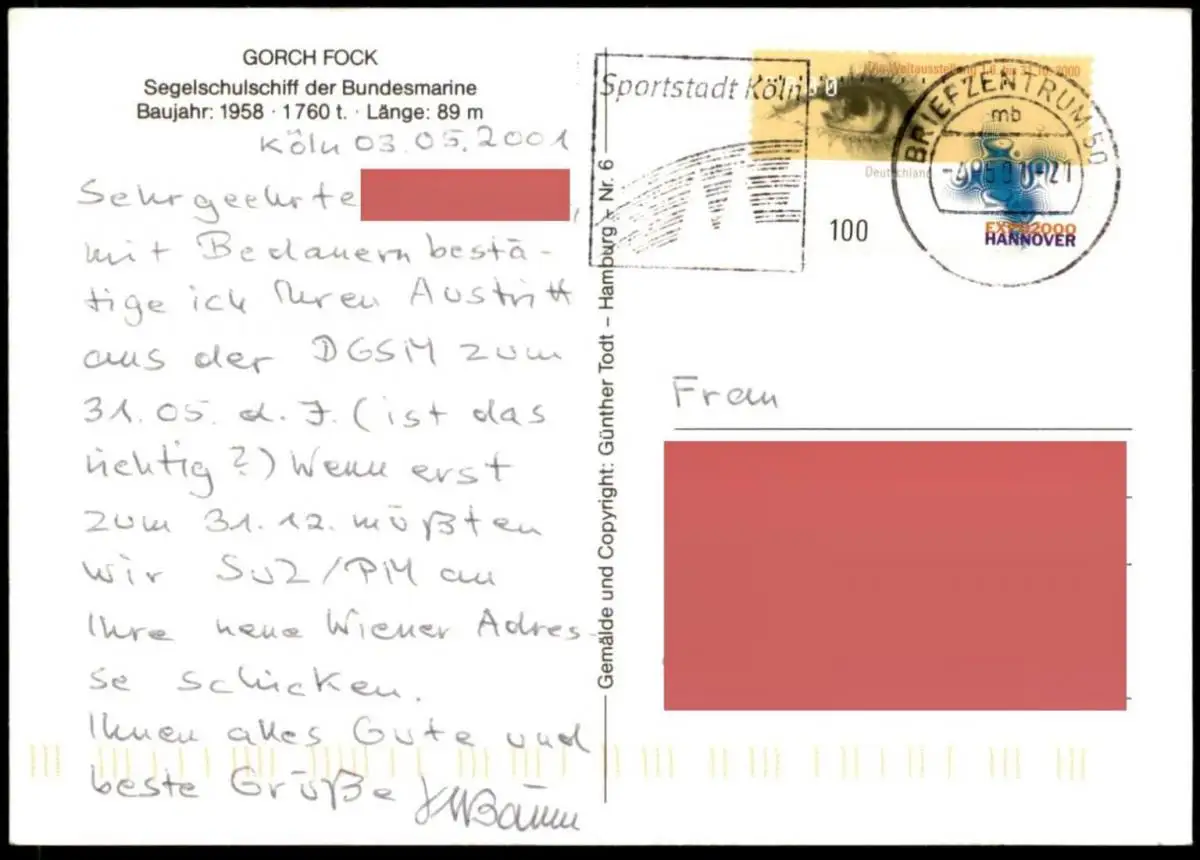 GORCH FOCK
Segelschulschiff der Bundesmarine
Baujahr: 1958 · 1760 t. · Länge: 89 m
Köln 03.05.2001
Sehrgeehrte ,
mit Bedauern bestä-
tige ich Ihren Austritt
aus der DGSM zum
31.05. d. J. (ist das
richtig?) Wenn erst
zum 31.12. müßten
wir SuZ/PM an
Ihre neue Wiener Adres-
se schicken.
Ihnen alles Gute und
beste Grüße
Gemälde und Copyright: Günther Todt – Hamburg – Nr. 6
Sportstadt Köln
Deutschland
100
BRIEFZENTRUM 50
mb
EXPO2000
HANNOVER
Frau